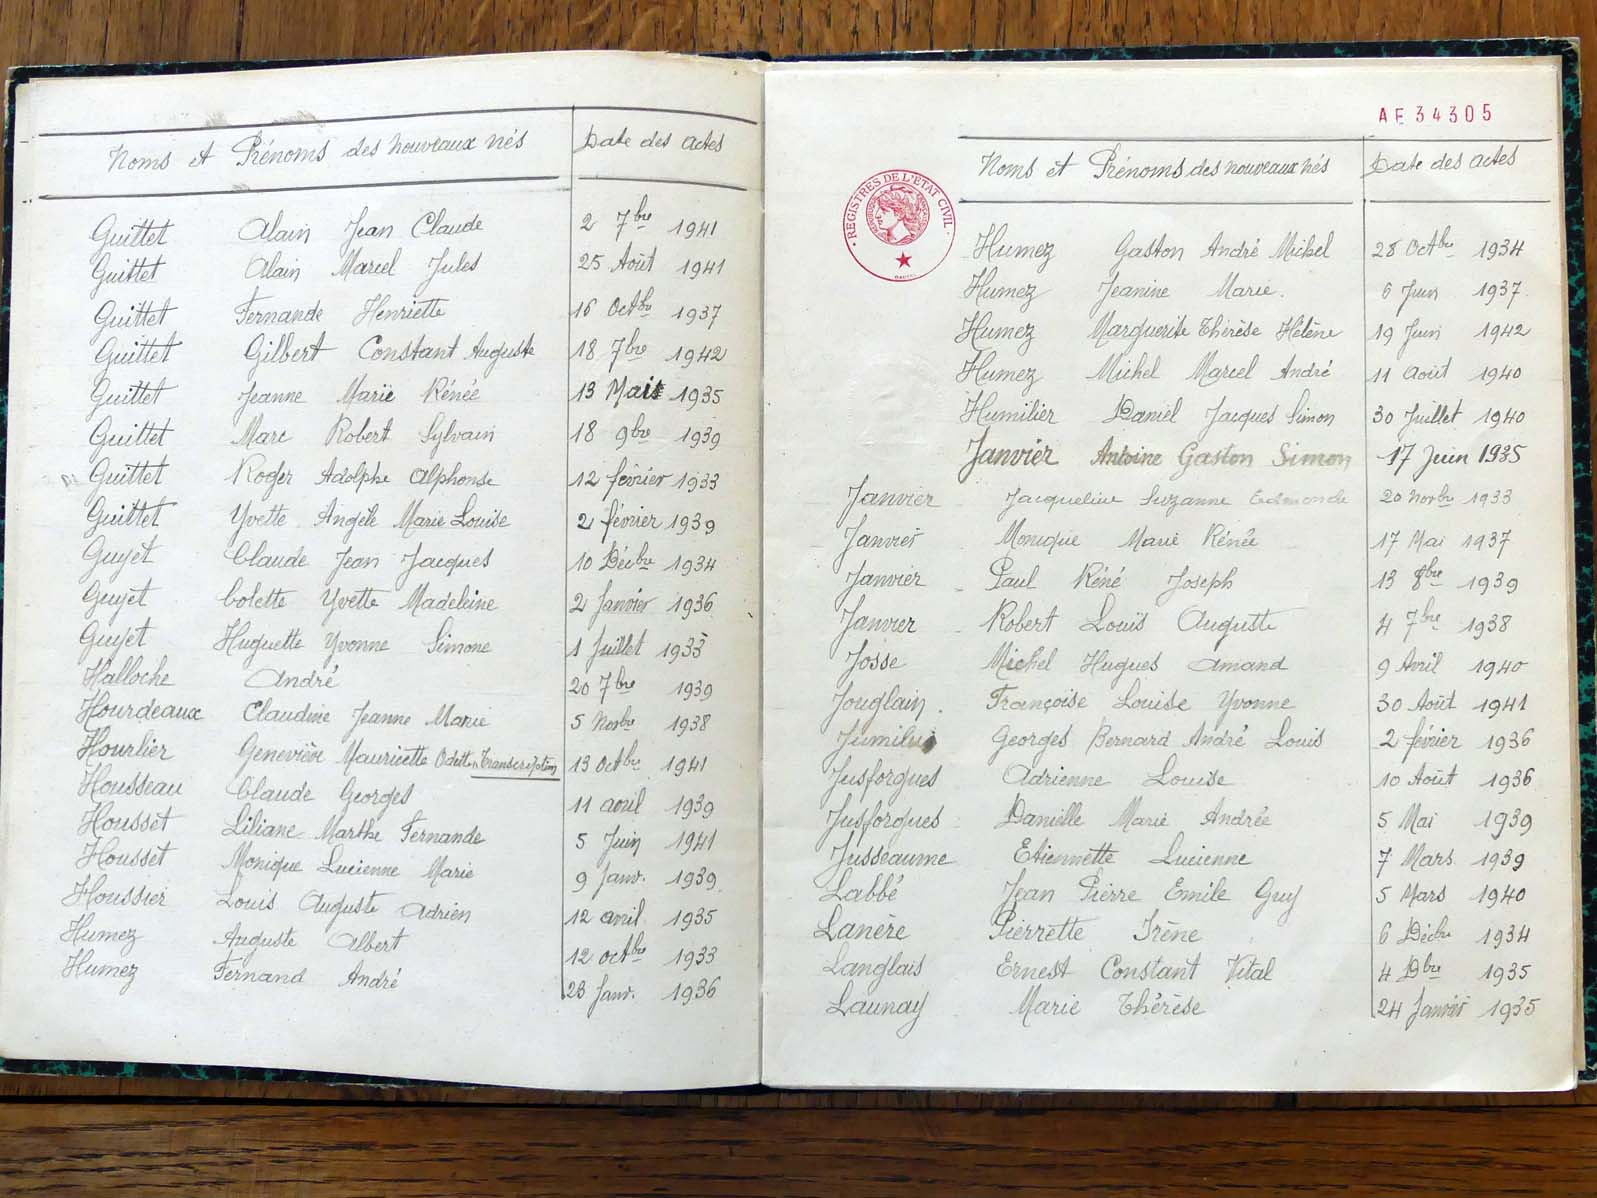 Noms et Prénoms des nouveaux nés Date des actes
Guittet Alain Jean Claude 2 7bre 1941
Guittet Alain Marcel Jules 25 Août 1941
Guittet Fernande Henriette 16 Octbre 1937
Guittet Gilbert Constant Auguste 18 7bre 1942
Guittet Jeanne Marie Rénée 13 Mais 1935
Guittet Marc Robert Sylvain 18 9bre 1939
Guittet Roger Adolphe Alphonse 12 février 1933
Guittet Yvette Angèle Marie Louise 2 février 1939
Guyet Claude Jean Jacques 10 Décbre 1934
Guyet Colette Yvette Madeleine 2 Janvier 1936
Guyet Huguette Yvonne Simone 1 Juillet 1933
Halloche André 20 7bre 1939
Hourdeaux Claudine Jeanne Marie 5 Novbre 1938
Hourlier Geneviève Mauricette Odette Transcription 13 Octbre 1941
Housseau Claude Georges 11 avril 1939
Housset Liliane Marthe Fernande 5 Juin 1941
Housset Monique Lucienne Marie 9 Janv. 1939
Houssier Louis Auguste Adrien 12 avril 1935
Humez Auguste Albert 12 octbre 1933
Humez Fernand André 23 Janv. 1936
AE 34305
REGISTRES DE L'ETAT CIVIL
Noms et Prénoms des nouveaux nés Date des actes
Humez Gaston André Michel 28 Octbre 1934
Humez Jeanine Marie. 6 Juin 1937
Humez Marguerite Thérèse Hélène 19 Juin 1942
Humez Michel Marcel André 11 Août 1940
Humilier Daniel Jacques Simon 30 Juillet 1940
Janvier Antoine Gaston Simon 17 Juin 1935
Janvier Jacqueline Suzanne Edmonde 20 Novbre 1933
Janvier Monique Marie Rénée 17 Mai 1937
Janvier Paul Réné Joseph 13 8bre 1939
Janvier Robert Louis Auguste 4 7bre 1938
Josse Michel Hugues Amand 9 Avril 1940
Jouglain. Françoise Louise Yvonne 30 Août 1941
Georges Bernard André Louis 2 février 1936
Jusforgues Adrienne Louise 10 Août 1936
Jusforgues Danielle Marie Andrée 5 Mai 1939
Jusseaume Etiennette Lucienne 7 Mars 1939
Labbé Jean Pierre Emile Guy 5 Mars 1940
Lanère Pierrette Irène 6 Décbre 1934
Langlais Ernest Constant Vital 4 Dbre 1935
Launay Marie Thérèse 24 Janvier 1935